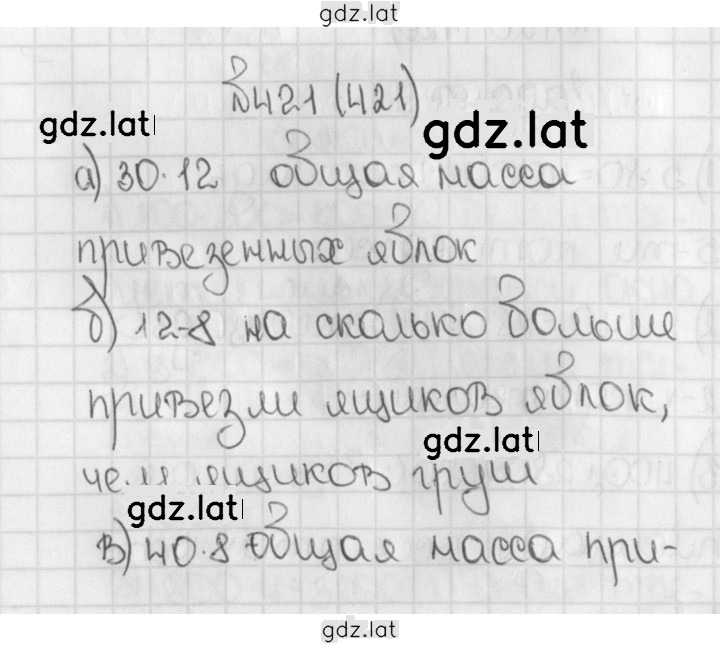 gdz.lat
№421 (421)
gdz.lat
gdz.lat
а) 30·12 общая масса
привезенных яблок
б) 12-8 на сколько больше
привезли ящиков яблок,
gdz.lat
чем ящиков груш
gdz.lat
в) 40·8 общая масса при-
gdz.lat